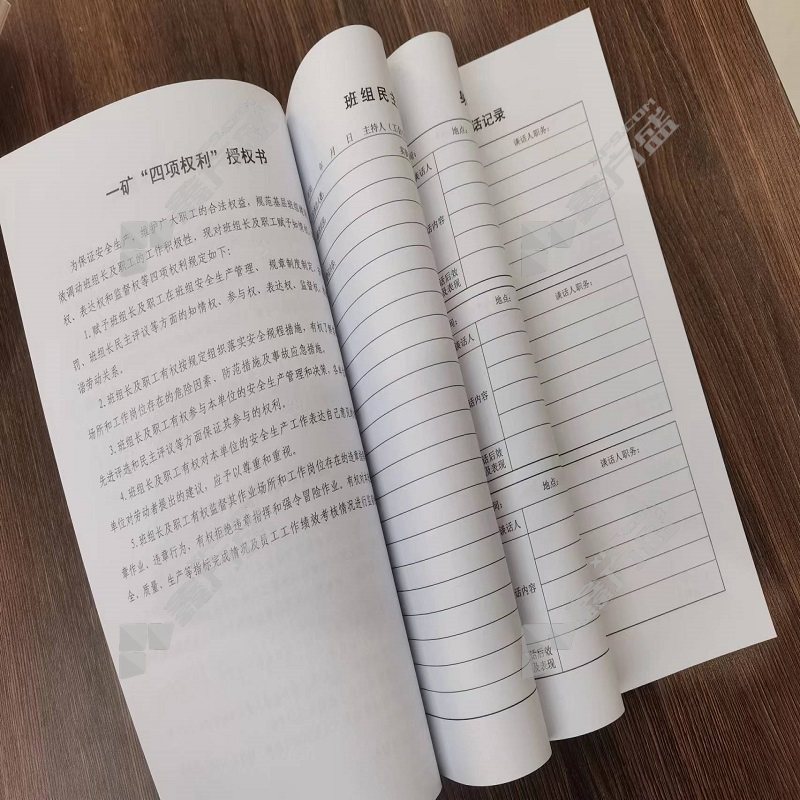 一矿“四项权利”授权书
为保证安全生产，维护广大职工的合法权益，规范基层班组
效调动班组长及职工的工作积极性，现对班组长及职工赋予知情
权、表达权和监督权等四项权利规定如下：
1.赋予班组长及职工在班组安全生产管理、规章制度制定、
罚、班组长民主评议等方面的知情权、参与权、表达权、监督权，
谐劳动关系。
2.班组长及职工有权按规定组织落实安全规程措施，有权了解
场所和工作岗位存在的危险因素、防范措施及事故应急措施。
3.班组长及职工有权参与本单位的安全生产管理和决策，
先进评选和民主评议等方面保证其参与的权利。
4.班组长及职工有权对本单位的安全生产工作表达自己意见
单位对劳动者提出的建议，应予以尊重和重视。
5.班组长及职工有权监督其作业场所和工作岗位存在的违章
章作业、违章行为，有权拒绝违章指挥和强令冒险作业，有权对
全、质量、生产等指标完成情况及员工工作绩效考核情况进行
班组民主
年 月 日 主持人（
地点：
谈话人
话内容
话后效
及表现
地点：
谈话人
话内容
话后效
及表现
地点：
谈话人
话内容
话后效
及表现
话记录
谈话人职务：
谈话人职务：
谈话人职务：